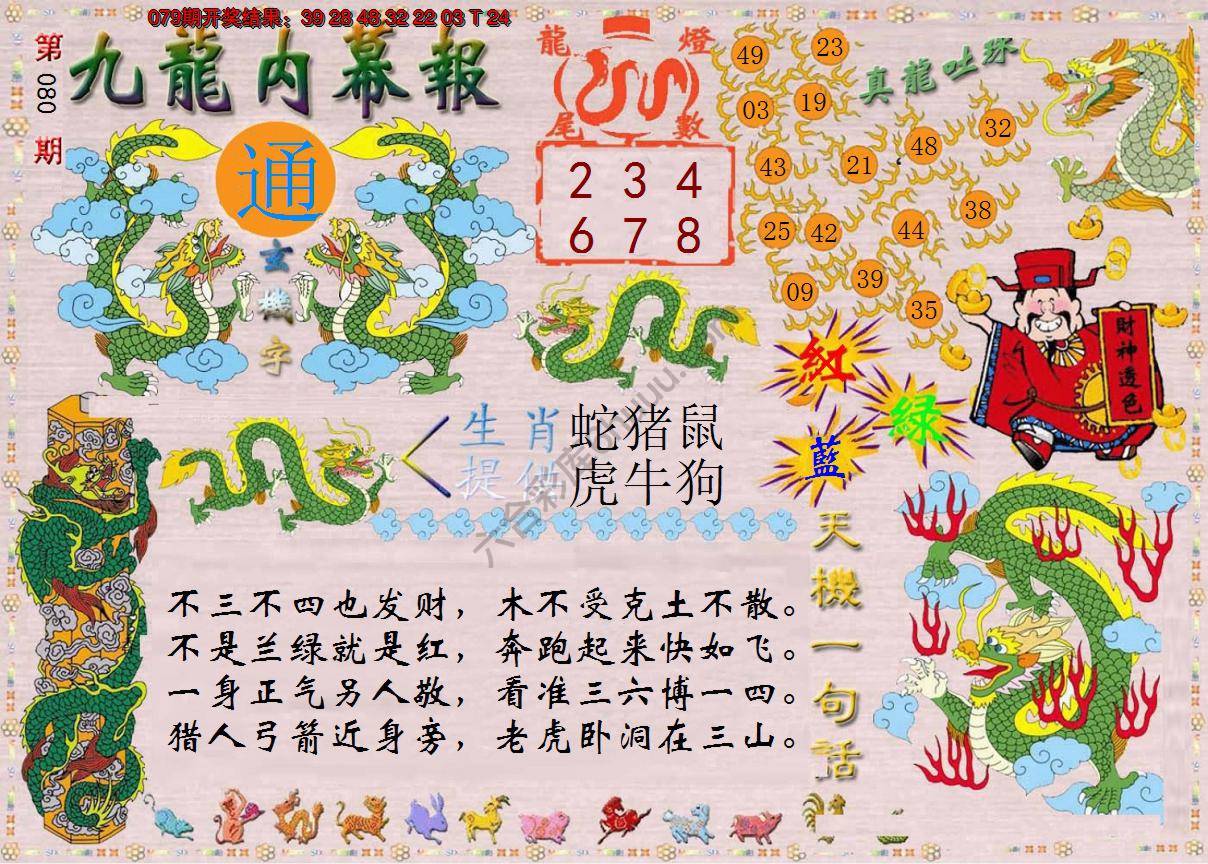 079期开奖结果：39 28 48 32 22 03 T 24
第080期
九龍内幕報
通
玄機字
龍燈
尾數
2 3 4
6 7 8
真龍吐珠
49 23
03 19
48 32
43 21
38
25 42 44
39
09
35
財神透色
紅
綠
藍
生肖 蛇猪鼠
提供 虎牛狗
天機一句話
不三不四也发财，木不受克土不散。
不是兰绿就是红，奔跑起来快如飞。
一身正气另人敬，看准三六博一四。
猎人弓箭近身旁，老虎卧洞在三山。